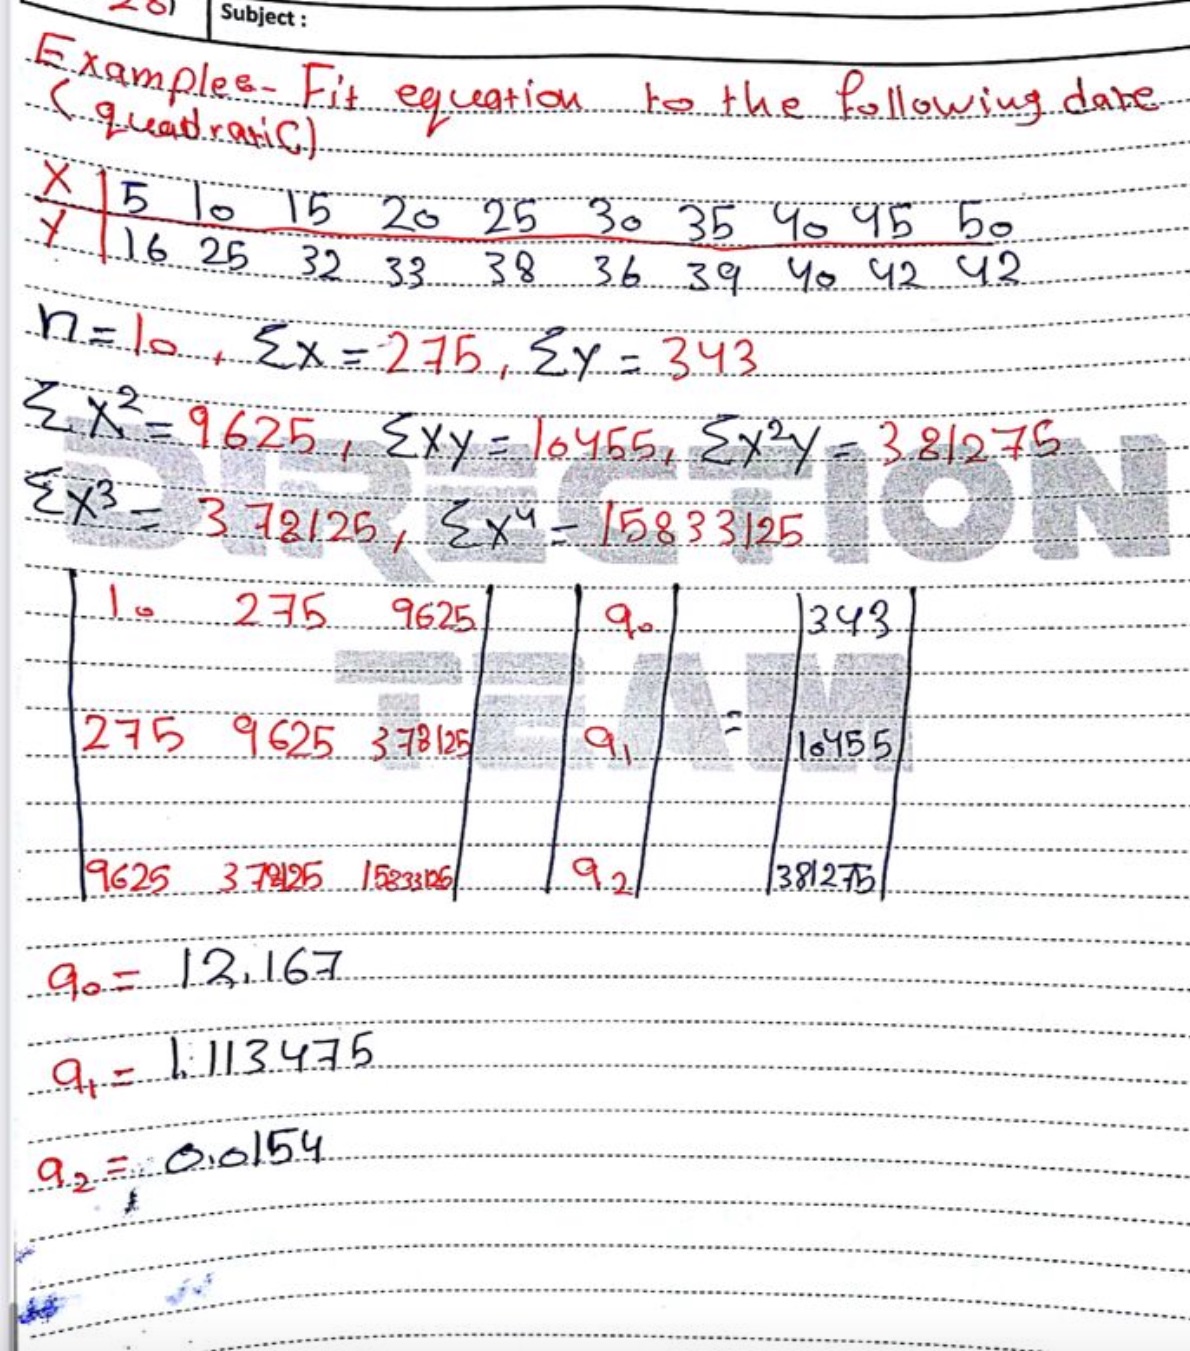 Subject :
Examples- Fit equation to the following date
(quadratic)
X 5 10 15 20 25 30 35 40 45 50
Y 16 25 32 33 38 36 39 40 42 42
n=10, Σx=275, Σy=343
Σx²=9625, Σxy=10455, Σx²y=381275
Σx³=378125, Σx⁴=15833125
DIRECTION
10 275 9625 a₀ 343
TEAM
275 9625 378125 a₁ = 10455
9625 378125 15833125 a₂ 381275
a₀= 12.167
a₁= 1.113475
a₂= 0.0154